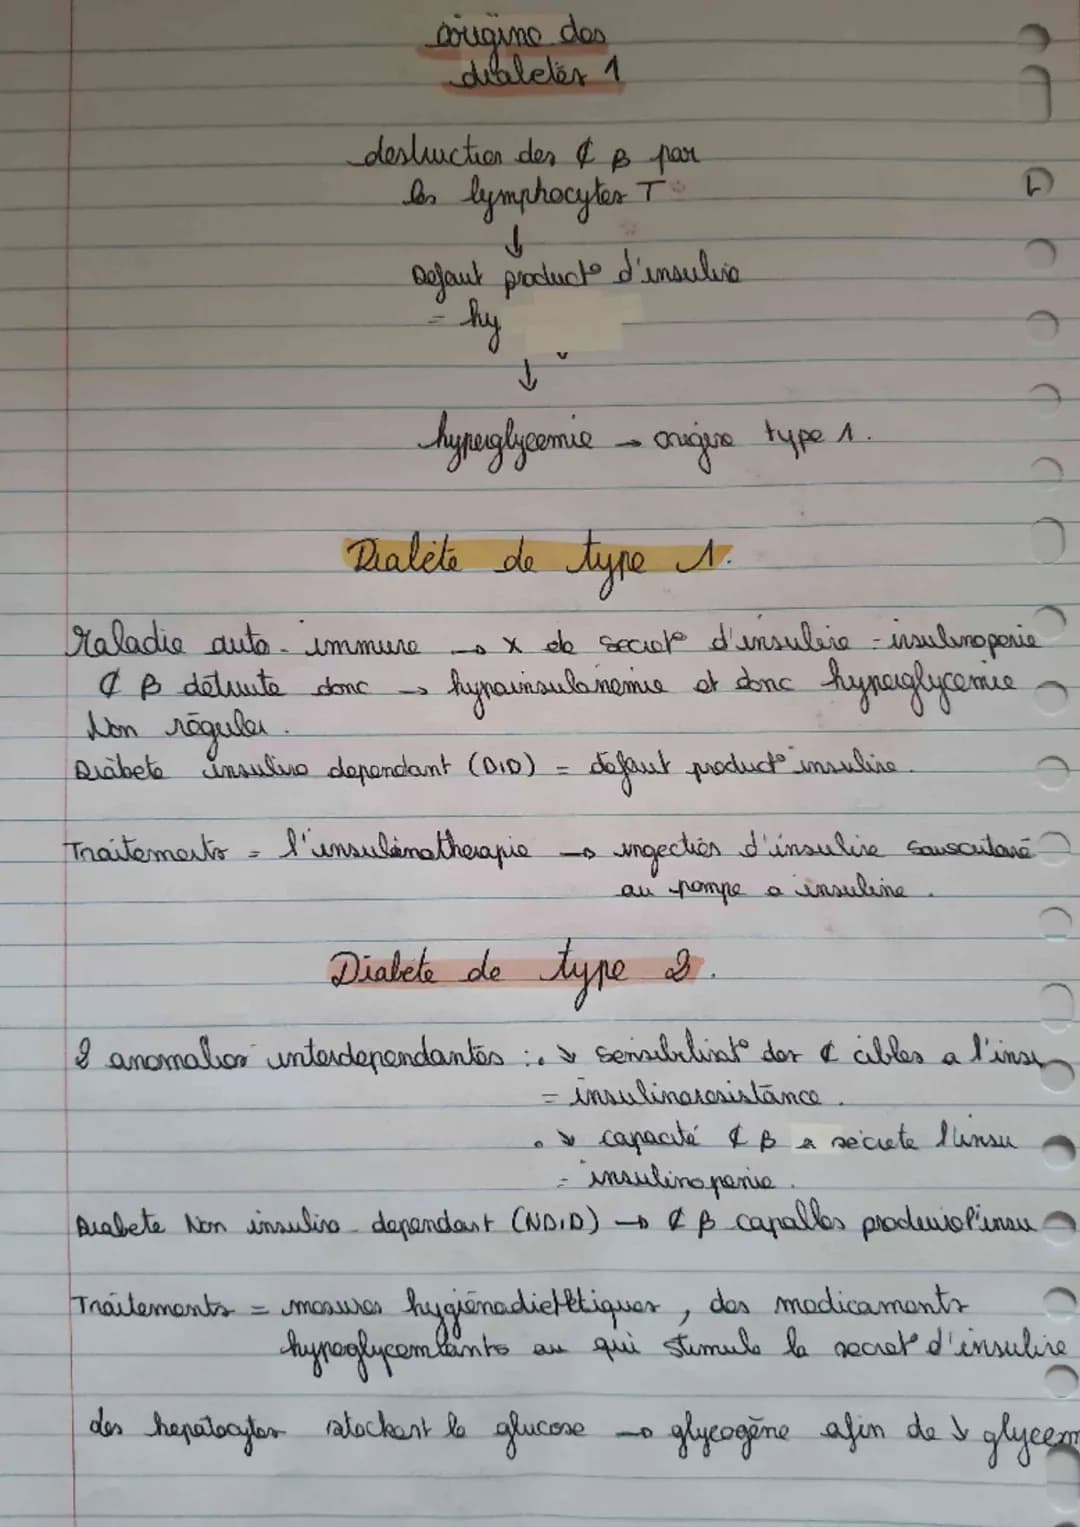 origine des
diabetes 1
destruction des ₵ B par
les lymphocytes T
↓
Defaut product° d'insuline
= hy
↓
hyperglycemie → origine type 1.
Diabète de type 1.
Maladie auto-immune → x de secret° d'insuline = insulinopenie
₵ B détruite donc → hypoinsulanemie et donc hyperglycemie
Non réguler.
Diabete insulino dependant (DID) = défaut product° insuline.
Traitements = l'insulinotherapie → ingection d'insuline souscutané
ou pompe a insuline.
Diabete de type 2.
2 anomalies interdependantes : • ↘ sensibilisat° des ₵ cibles a l'insu
= insulinoresistance.
• ↘ capacité ₵ B a sécrete l'insu
= insulinopenie.
Diabete Non insulino-dependant (NDID) → ₵ B capables produire l'insu
Traitements = mesures hygiénodietétiques, des medicaments
hypoglycemiants ou qui stimule la secret° d'insuline
des hepatocytes stockant le glucose → glycogène afin de ↓ glycem